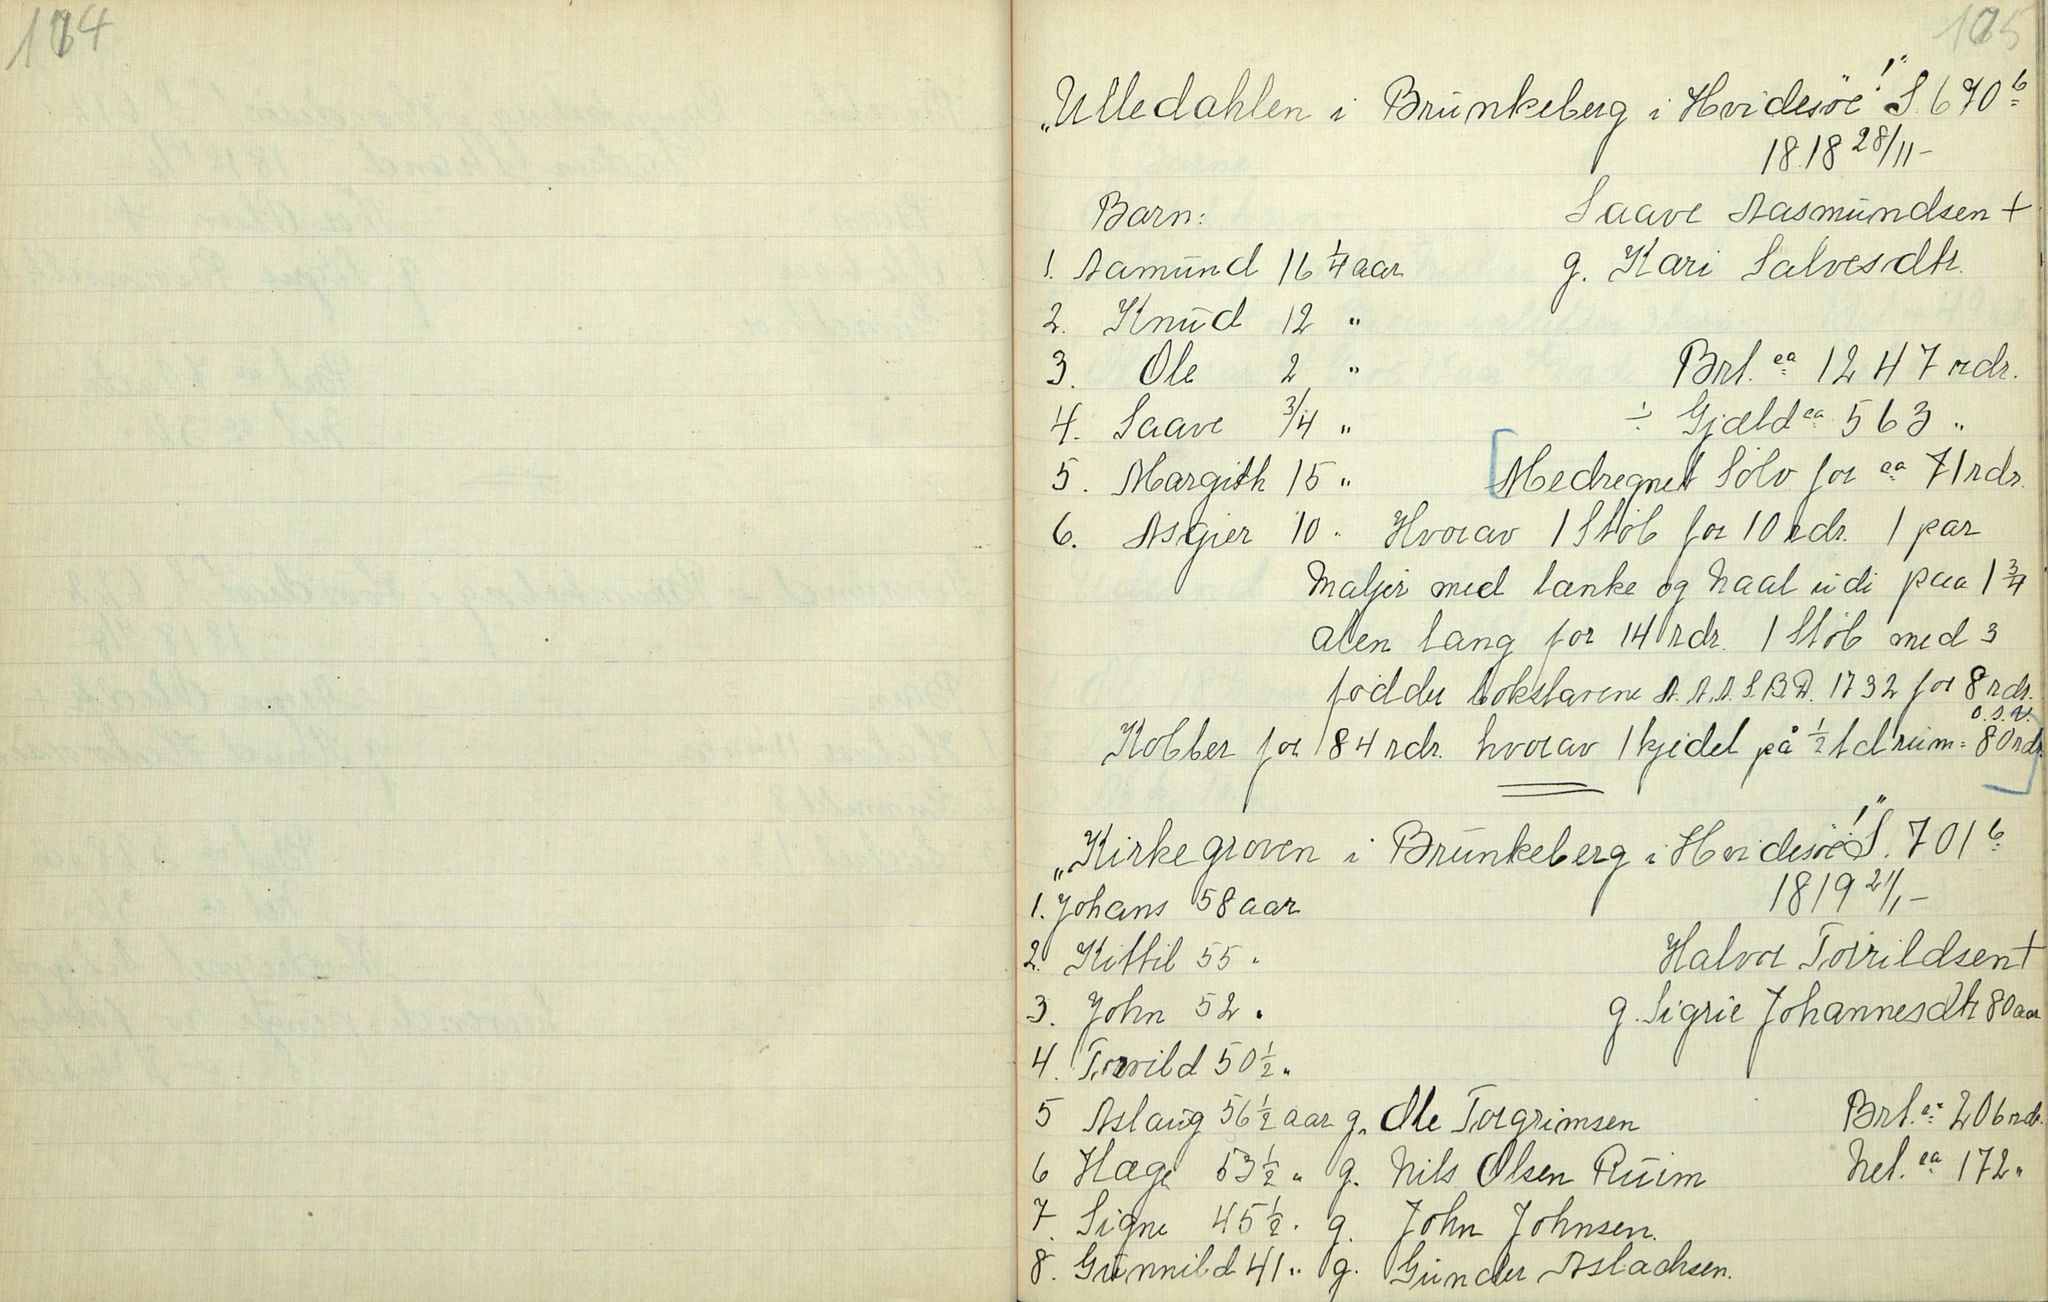 174
175
„Ulledahlen i Brunkeberg i Hvidesöe!" S. 670 b
1818 28/11 –
Barn: Saave Aasmundsen +
1. Aamund 16 1/4 aar g. Kari Salvesdtr.
2. Knud 12 "
3. Ole 2 " Brt. ca 1247 rdr.
4. Saave 3/4 " ÷ Gjæld ca 563 "
5. Margith 15 " [Medregnet Sölv for ca 71 rdr.
6. Asgier 10 " Hvorav 1 Stöb for 10 rdr. 1 par
Maljer med lænke og Naal udi paa 1 3/4
alen lang for 14 rdr. 1 Stöb med 3
födder bokstavene A.A.A.S.B.D. 1732 for 8 rdr.
o.s.v.
Kobber for 184 rdr. hvorav 1 kjedel på 1/2 td rum = 80 rdr.]
„Kirkegroven i Brunkeberg i Hvidesöe!" S. 701 b
1819 21/1 –
1. Johans 58 aar
2. Kittil 55 " Halvor Torrildsen +
3. John 52 " g. Sigrie Johannesdtr 80 aar
4. Torvild 50 1/2 "
5 Aslaug 56 1/2 aar g. Ole Torgrimsen Brt. ca 206 rdr.
6 Hæge 53 1/2 " g. Nils Olsen Ruim Net. ca 172 "
7. Signe 45 1/2 " g. John Johnsen.
8. Gunnild 41 " g. Gunder Aslachsen.